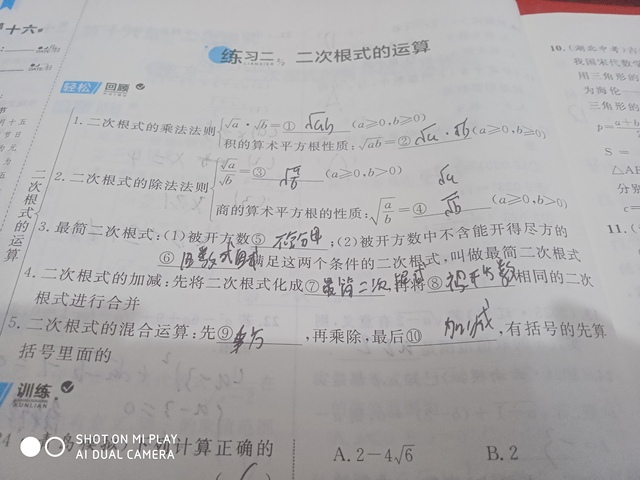 练习二 二次根式的运算
轻松 回顾
二次根式的运算
1.二次根式的乘法法则
√a·√b=① √ab (a≥0,b≥0)
积的算术平方根性质:√ab=② √a·√b (a≥0,b≥0)
2.二次根式的除法法则
√a/√b=③ √(a/b) (a≥0,b>0)
商的算术平方根的性质:√(a/b)=④ √a/√b (a≥0,b>0)
3.最简二次根式:(1)被开方数⑤ 不含分母;(2)被开方数中不含能开得尽方的
⑥ 因数或因式 满足这两个条件的二次根式,叫做最简二次根式
4.二次根式的加减:先将二次根式化成⑦ 最简二次根式 ⑧ 被开方数 相同的二次
根式进行合并
5.二次根式的混合运算:先⑨ 乘方,再乘除,最后⑩ 加减,有括号的先算
括号里面的
训练
XUNLIAN
下列计算正确的
A.2-4√6 B.2
10.(湖北中考)
我国宋代数学
用三角形的
为海伦
三角形的
p=a+b
S=
△AB
分别
c=
11.
SHOT ON MI PLAY
AI DUAL CAMERA